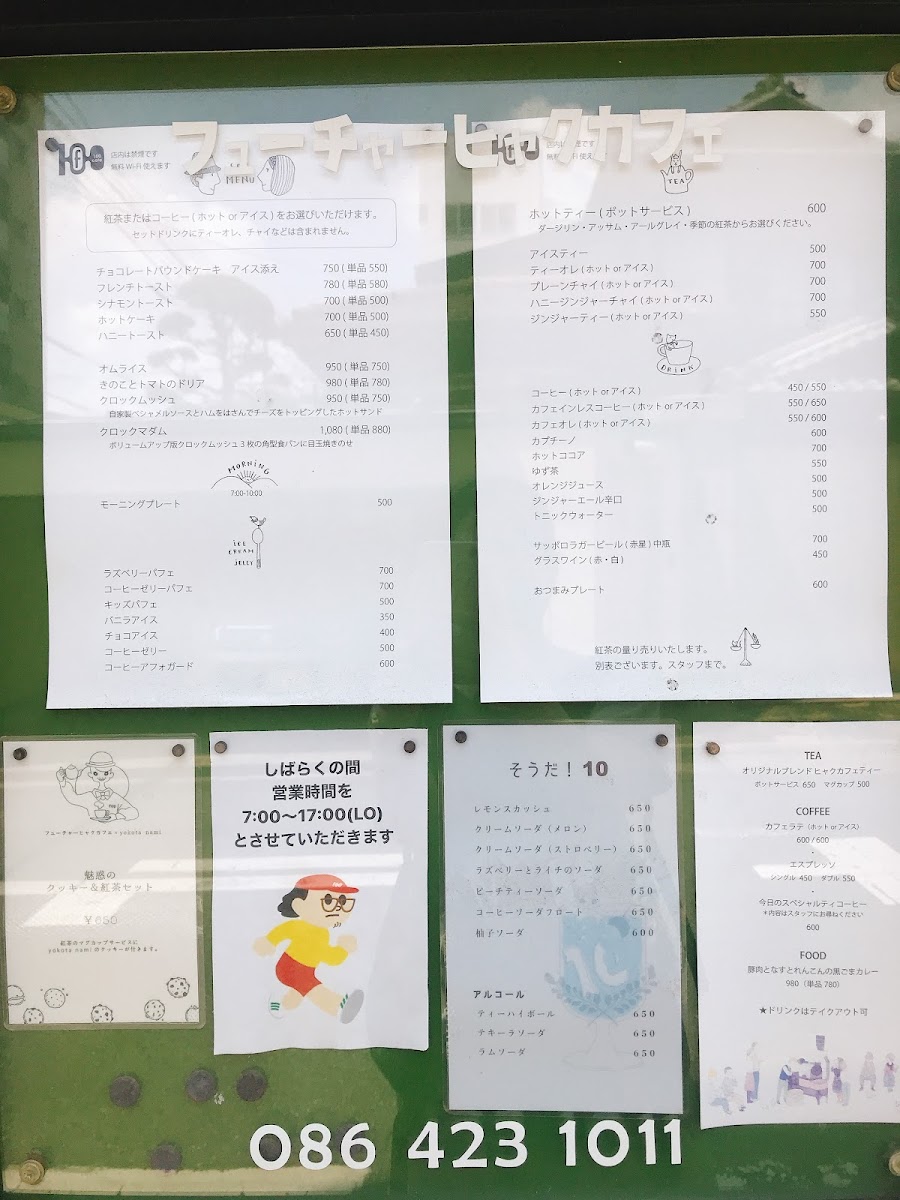 フューチャーヒャクカフェ
店内は禁煙です
無料 Wi-Fi 使えます
MENU
紅茶またはコーヒー ( ホット or アイス ) をお選びいただけます。
セットドリンクにティーオレ、チャイなどは含まれません。
チョコレートパウンドケーキ アイス添え 750 ( 単品 550)
フレンチトースト 780 ( 単品 580)
シナモントースト 700 ( 単品 500)
ホットケーキ 700 ( 単品 500)
ハニートースト 650 ( 単品 450)
オムライス 950 ( 単品 750)
きのことトマトのドリア 980 ( 単品 780)
クロックムッシュ 950 ( 単品 750)
自家製ベシャメルソースとハムをはさんでチーズをトッピングしたホットサンド
クロックマダム 1,080 ( 単品 880)
ボリュームアップ版クロックムッシュ 3 枚の角型食パンに目玉焼きのせ
MORNING
7:00-10:00
モーニングプレート 500
ICE
CREAM
JELLY
ラズベリーパフェ 700
コーヒーゼリーパフェ 700
キッズパフェ 500
バニラアイス 350
チョコアイス 400
コーヒーゼリー 500
コーヒーアフォガード 600
TEA
ホットティー ( ポットサービス ) 600
ダージリン・アッサム・アールグレイ・季節の紅茶からお選びください。
アイスティー 500
ティーオレ ( ホット or アイス ) 700
プレーンチャイ ( ホット or アイス ) 700
ハニージンジャーチャイ ( ホット or アイス ) 700
ジンジャーティー ( ホット or アイス ) 550
DRINK
コーヒー ( ホット or アイス ) 450 / 550
カフェインレスコーヒー ( ホット or アイス ) 550 / 650
カフェオレ ( ホット or アイス ) 550 / 600
カプチーノ 600
ホットココア 700
ゆず茶 550
オレンジジュース 500
ジンジャーエール辛口 500
トニックウォーター 500
サッポロラガービール ( 赤星 ) 中瓶 700
グラスワイン ( 赤・白 ) 450
おつまみプレート 600
紅茶の量り売りいたします。
別表ございます。スタッフまで。
フューチャーヒャクカフェ × yokota nami
魅惑の
クッキー＆紅茶セット
¥650
紅茶のマグカップサービスに
yokota nami のクッキーが付きます。
しばらくの間
営業時間を
7:00〜17:00(LO)
とさせていただきます
そうだ！ 10
レモンスカッシュ 650
クリームソーダ（メロン） 650
クリームソーダ（ストロベリー） 650
ラズベリーとライチのソーダ 650
ピーチティーソーダ 650
コーヒーソーダフロート 650
柚子ソーダ 600
アルコール
ティーハイボール 650
テキーラソーダ 650
ラムソーダ 650
TEA
オリジナルブレンド ヒャクカフェティー
ポットサービス 650 マグカップ 500
COFFEE
カフェラテ（ホット or アイス）
600 / 600
エスプレッソ
シングル 450 ダブル 550
今日のスペシャルティコーヒー
＊内容はスタッフにお尋ねください
600
FOOD
豚肉となすとれんこんの黒ごまカレー
980（単品 780）
★ドリンクはテイクアウト可
086 423 1011